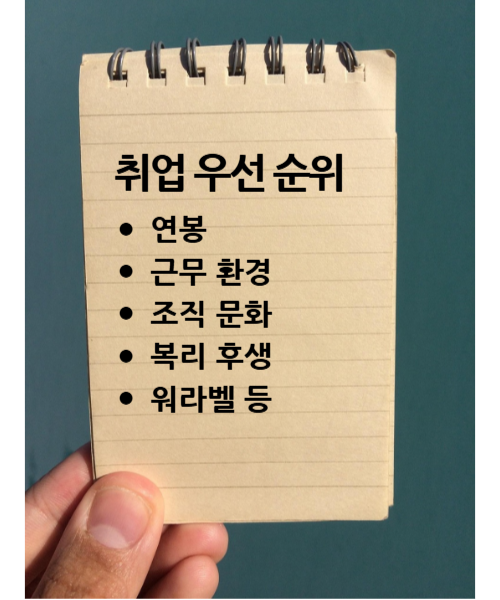 취업 우선 순위
• 연봉
• 근무 환경
• 조직 문화
• 복리 후생
• 워라벨 등